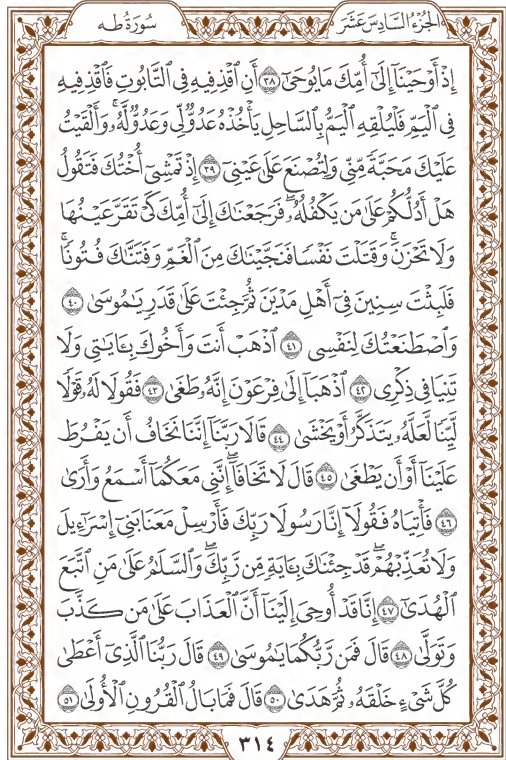 الجزء السادس عشر
سورة طه
إِذْ أَوْحَيْنَآ إِلَىٰٓ أُمِّكَ مَا يُوحَىٰٓ ۝٣٨ أَنِ ٱقْذِفِيهِ فِى ٱلتَّابُوتِ فَٱقْذِفِيهِ
فِى ٱلْيَمِّ فَلْيُلْقِهِ ٱلْيَمُّ بِٱلسَّاحِلِ يَأْخُذْهُ عَدُوٌّ لِّى وَعَدُوٌّ لَّهُۥ ۚ وَأَلْقَيْتُ
عَلَيْكَ مَحَبَّةً مِّنِّى وَلِتُصْنَعَ عَلَىٰ عَيْنِىٓ ۝٣٩ إِذْ تَمْشِىٓ أُخْتُكَ فَتَقُولُ
هَلْ أَدُلُّكُمْ عَلَىٰ مَن يَكْفُلُهُۥ ۖ فَرَجَعْنَٰكَ إِلَىٰٓ أُمِّكَ كَىْ تَقَرَّ عَيْنُهَا
وَلَا تَحْزَنَ ۚ وَقَتَلْتَ نَفْسًا فَنَجَّيْنَٰكَ مِنَ ٱلْغَمِّ وَفَتَنَّٰكَ فُتُونًا ۚ
فَلَبِثْتَ سِنِينَ فِىٓ أَهْلِ مَدْيَنَ ثُمَّ جِئْتَ عَلَىٰ قَدَرٍ يَٰمُوسَىٰ ۝٤٠
وَٱصْطَنَعْتُكَ لِنَفْسِى ۝٤١ ٱذْهَبْ أَنتَ وَأَخُوكَ بِـَٔايَٰتِى وَلَا
تَنِيَا فِى ذِكْرِى ۝٤٢ ٱذْهَبَآ إِلَىٰ فِرْعَوْنَ إِنَّهُۥ طَغَىٰ ۝٤٣ فَقُولَا لَهُۥ قَوْلًا
لَّيِّنًا لَّعَلَّهُۥ يَتَذَكَّرُ أَوْ يَخْشَىٰ ۝٤٤ قَالَا رَبَّنَآ إِنَّنَا نَخَافُ أَن يَفْرُطَ
عَلَيْنَآ أَوْ أَن يَطْغَىٰ ۝٤٥ قَالَ لَا تَخَافَآ ۖ إِنَّنِى مَعَكُمَآ أَسْمَعُ وَأَرَىٰ
۝٤٦ فَأْتِيَاهُ فَقُولَآ إِنَّا رَسُولَا رَبِّكَ فَأَرْسِلْ مَعَنَا بَنِىٓ إِسْرَٰٓءِيلَ
وَلَا تُعَذِّبْهُمْ ۖ قَدْ جِئْنَٰكَ بِـَٔايَةٍ مِّن رَّبِّكَ ۖ وَٱلسَّلَٰمُ عَلَىٰ مَنِ ٱتَّبَعَ
ٱلْهُدَىٰٓ ۝٤٧ إِنَّا قَدْ أُوحِىَ إِلَيْنَآ أَنَّ ٱلْعَذَابَ عَلَىٰ مَن كَذَّبَ
وَتَوَلَّىٰ ۝٤٨ قَالَ فَمَن رَّبُّكُمَا يَٰمُوسَىٰ ۝٤٩ قَالَ رَبُّنَا ٱلَّذِىٓ أَعْطَىٰ
كُلَّ شَىْءٍ خَلْقَهُۥ ثُمَّ هَدَىٰ ۝٥٠ قَالَ فَمَا بَالُ ٱلْقُرُونِ ٱلْأُولَىٰ ۝٥١
٣١٤